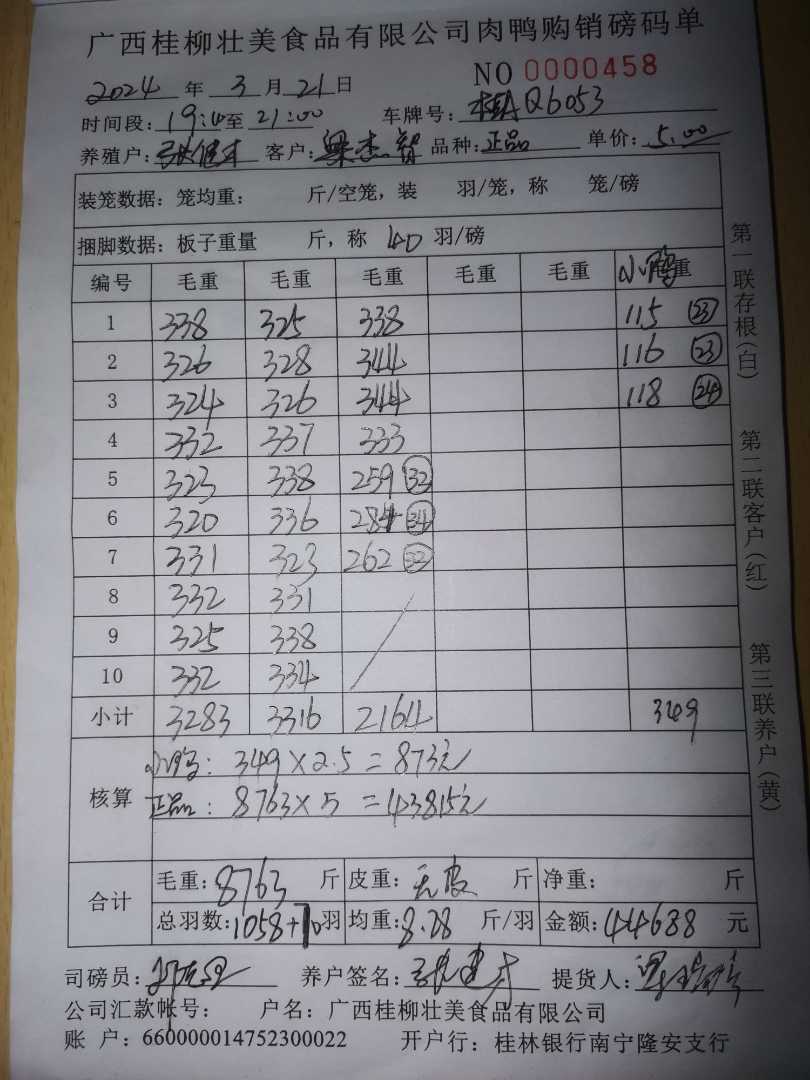 广西桂柳壮美食品有限公司肉鸭购销磅码单
NO 0000458
2024 年 3 月 21 日
时间段: 19:40 至 21:00 车牌号: 桂A Q6053
养殖户: 张健才 客户: 梁杰智 品种: 正品 单价: 5.00
装笼数据: 笼均重: 斤/空笼, 装 羽/笼, 称 笼/磅
捆脚数据: 板子重量 斤, 称 40 羽/磅
编号 毛重 毛重 毛重 毛重 毛重 小鸭 重
1 338 325 338 115 23
2 326 328 344 116 23
3 324 326 344 118 24
4 332 337 333
5 323 338 259 32
6 320 336 284 34
7 331 323 262 32
8 332 331
9 325 338
10 332 334
小计 3283 3316 2164 349
核算
小鸭: 349×2.5=873元
正品: 8763×5=43815元
合计
毛重: 8763 斤 皮重: 无皮 斤 净重: 斤
总羽数: 1058+70 羽 均重: 8.28 斤/羽 金额: 44688 元
司磅员: 养户签名: 张健才 提货人:
公司汇款帐号: 户名: 广西桂柳壮美食品有限公司
账 户: 660000014752300022 开户行: 桂林银行南宁隆安支行
第一联存根(白) 第二联客户(红) 第三联养户(黄)